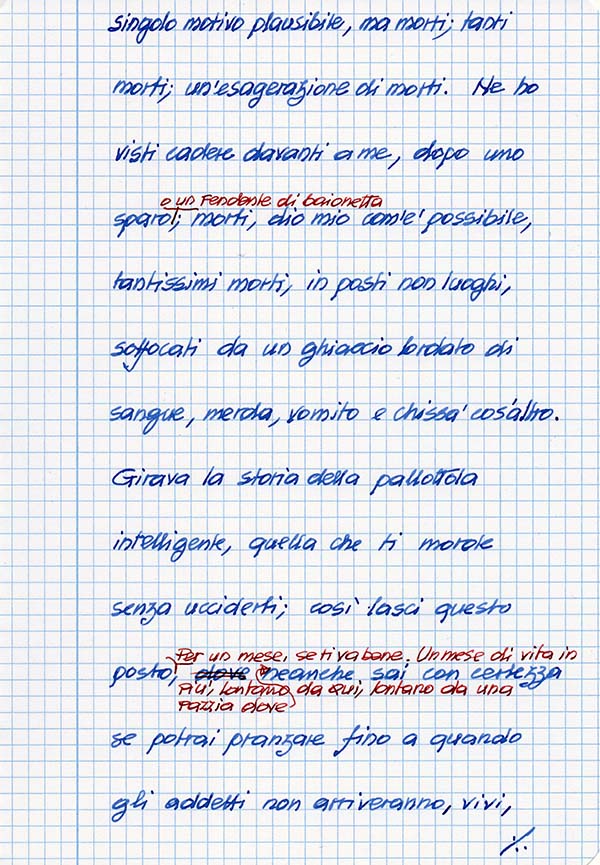 singolo motivo plausibile, ma morti; tanti
morti; un'esagerazione di morti. Ne ho
visti cadere davanti a me, dopo uno
o un fendente di baionetta
sparo; morti, dio mio com'e' possibile,
tantissimi morti, in posti non luoghi,
soffocati da un ghiaccio lordato di
sangue, merda, vomito e chissa' cos'altro.
Girava la storia della pallottola
intelligente, quella che ti morde
senza ucciderti; così lasci questo
Per un mese, se ti va bene. Un mese di vita in
posto, dove neanche sai con certezza
più, lontano da qui, lontano da una
pazzia dove
se potrai pranzare fino a quando
gli addetti non arriveranno, vivi,
./.